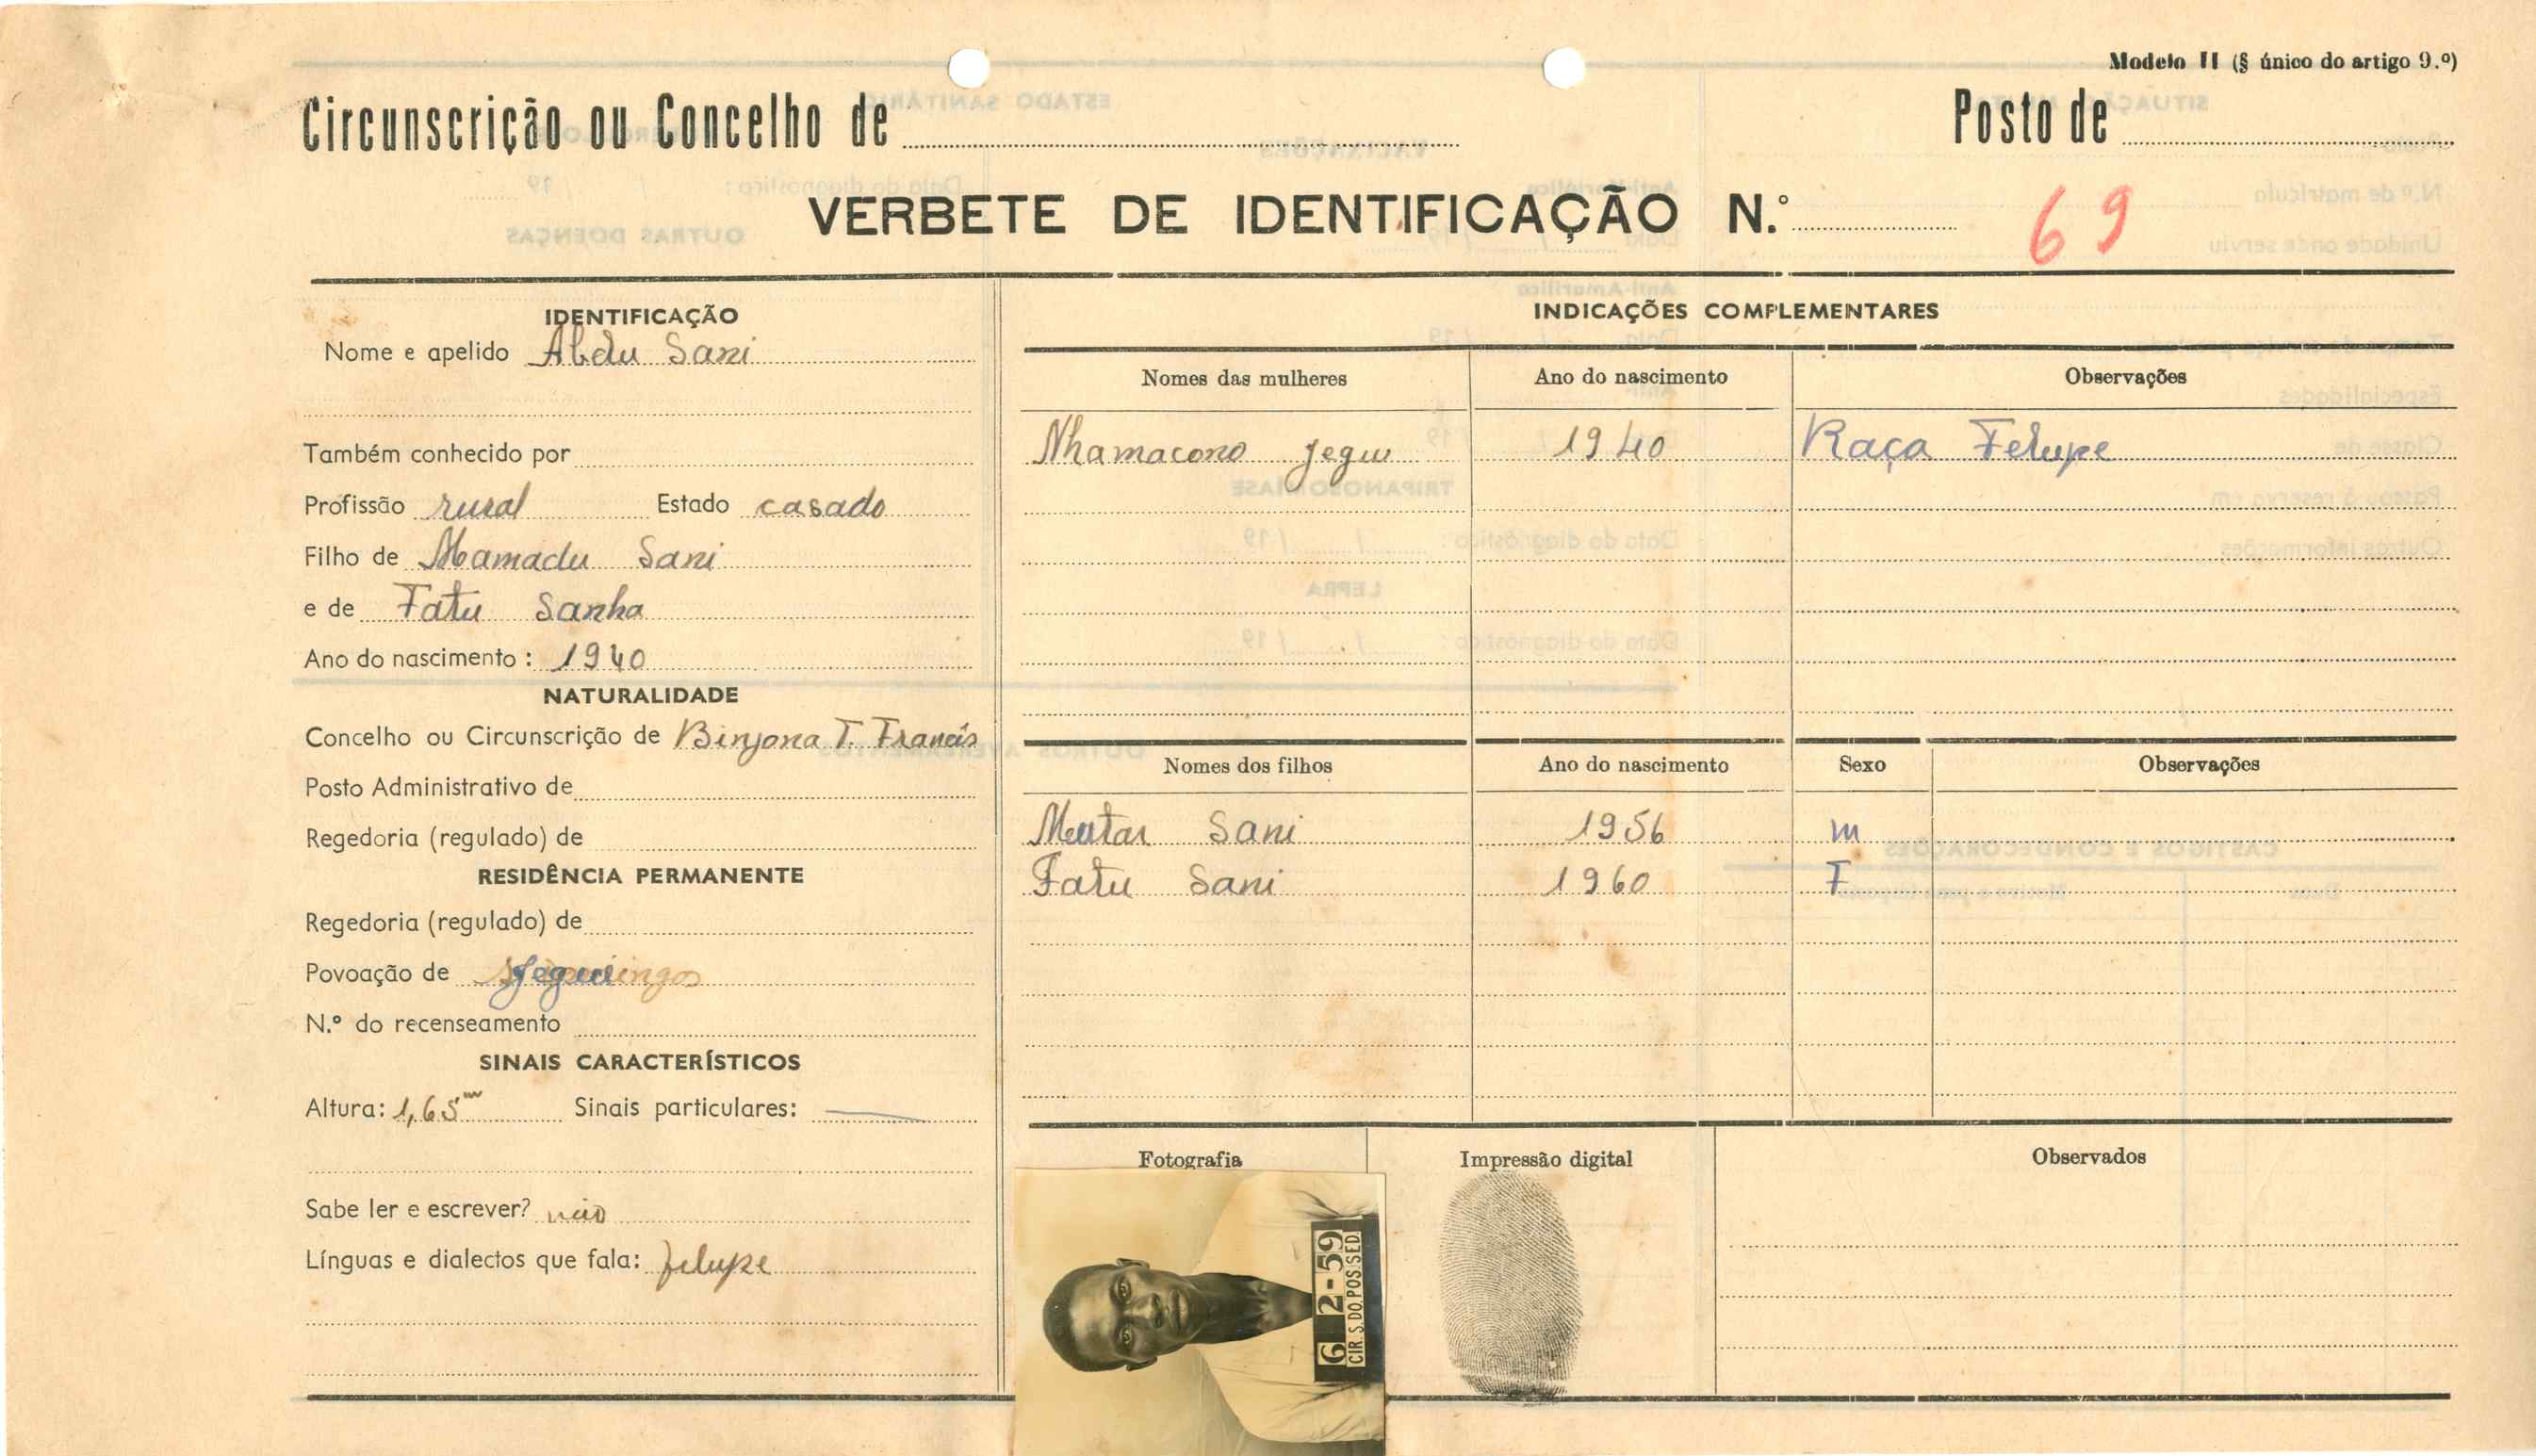 Modelo II (§ único do artigo 9.º)
Circunscrição ou Concelho de
Posto de
VERBETE DE IDENTIFICAÇÃO N.º 69
IDENTIFICAÇÃO
Nome e apelido Abdu Sani
Também conhecido por
Profissão rural Estado casado
Filho de Mamadu Sani
e de Fatu Sanha
Ano do nascimento: 1940
NATURALIDADE
Concelho ou Circunscrição de Binjona T. Francês
Posto Administrativo de
Regedoria (regulado) de
RESIDÊNCIA PERMANENTE
Regedoria (regulado) de
Povoação de
N.º do recenseamento
SINAIS CARACTERÍSTICOS
Altura: 1,65m Sinais particulares:
Sabe ler e escrever? não
Línguas e dialectos que fala: felupe
INDICAÇÕES COMPLEMENTARES
Nomes das mulheres Ano do nascimento Observações
Nhamacono Jegui 1940 Raça Felupe
Nomes dos filhos Ano do nascimento Sexo Observações
Mutar Sani 1956 m
Fatu Sani 1960 F
Fotografia Impressão digital Observados
6 2-59
CIR.S.DO.POS.SED.